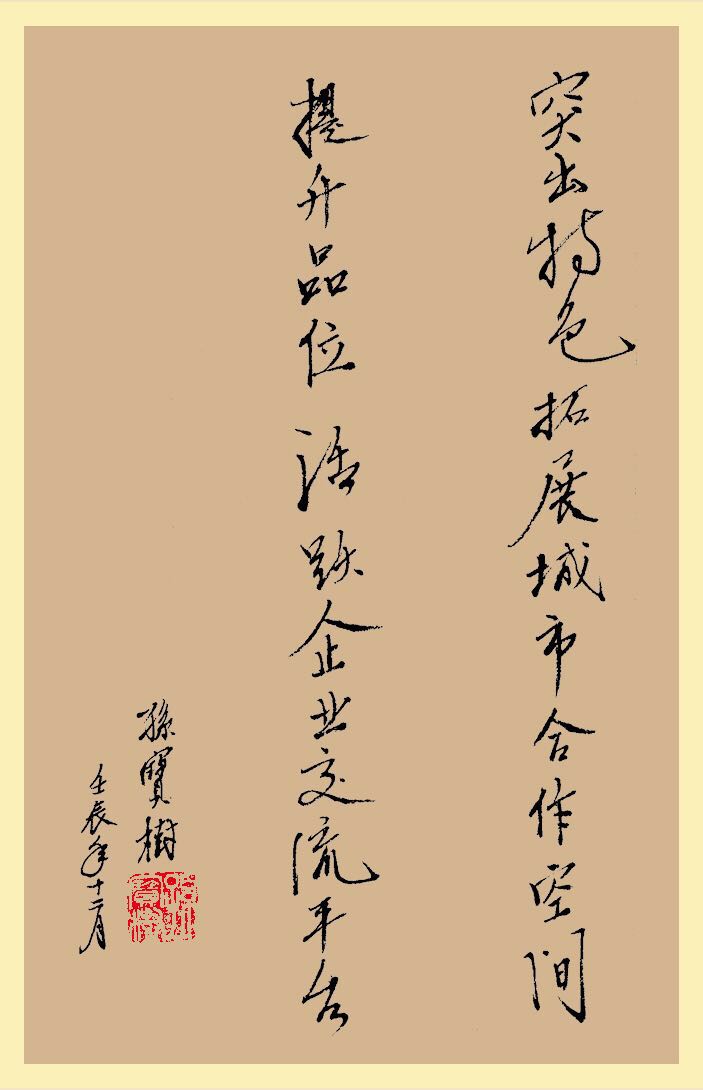 突出特色 拓展城市合作空间
提升品位 活跃企业交流平台
孫寶樹
壬辰年十二月